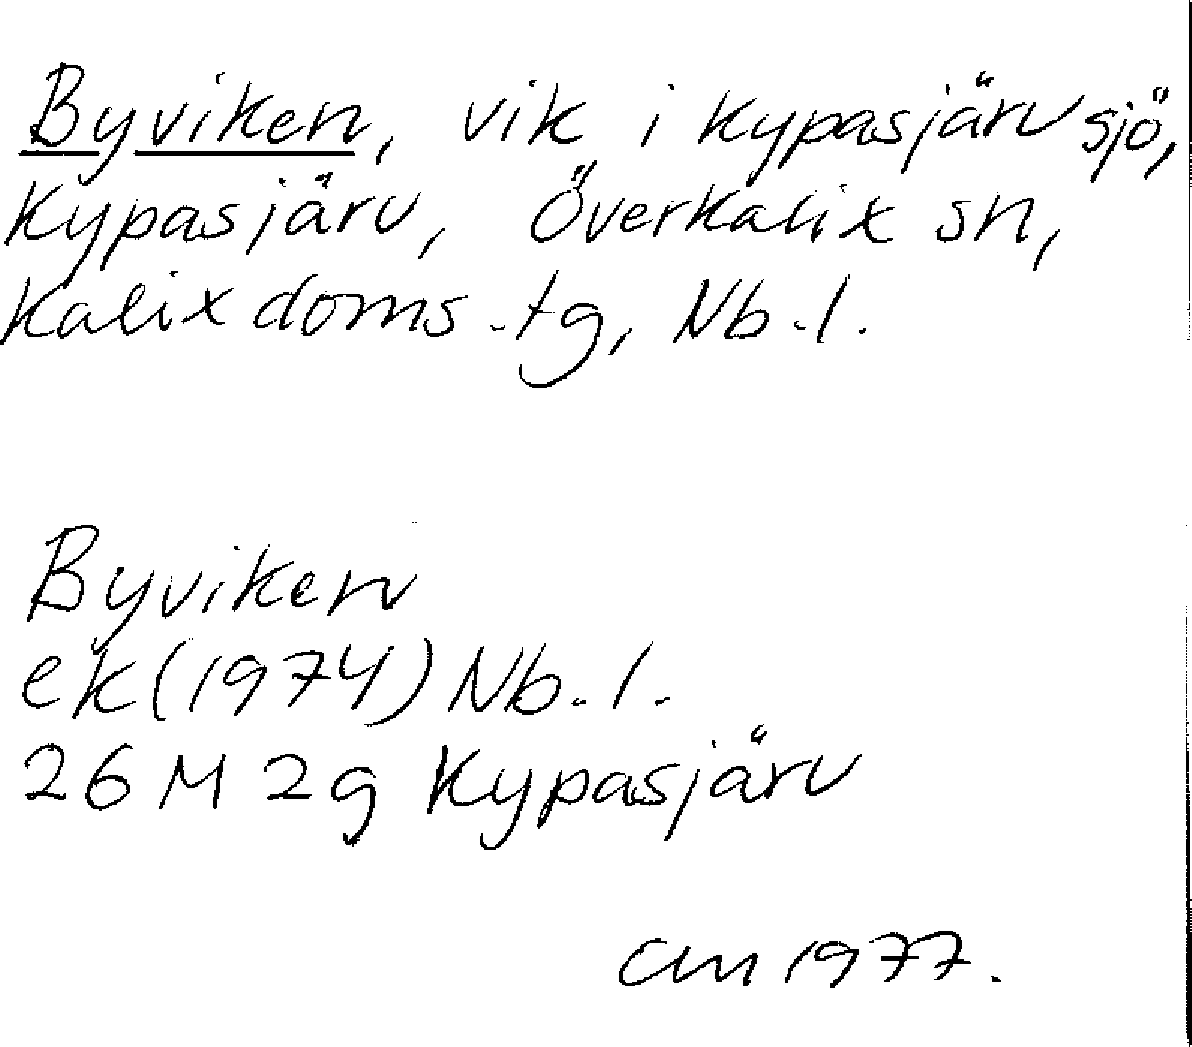 Byviken, vik i Kypasjärv sjö,
Kypasjärv, Överkalix sn,
Kalix doms.tg, Nb.l.
Byviken
ek(1974) Nb.l.
26 M 2g Kypasjärv
CM 1977.